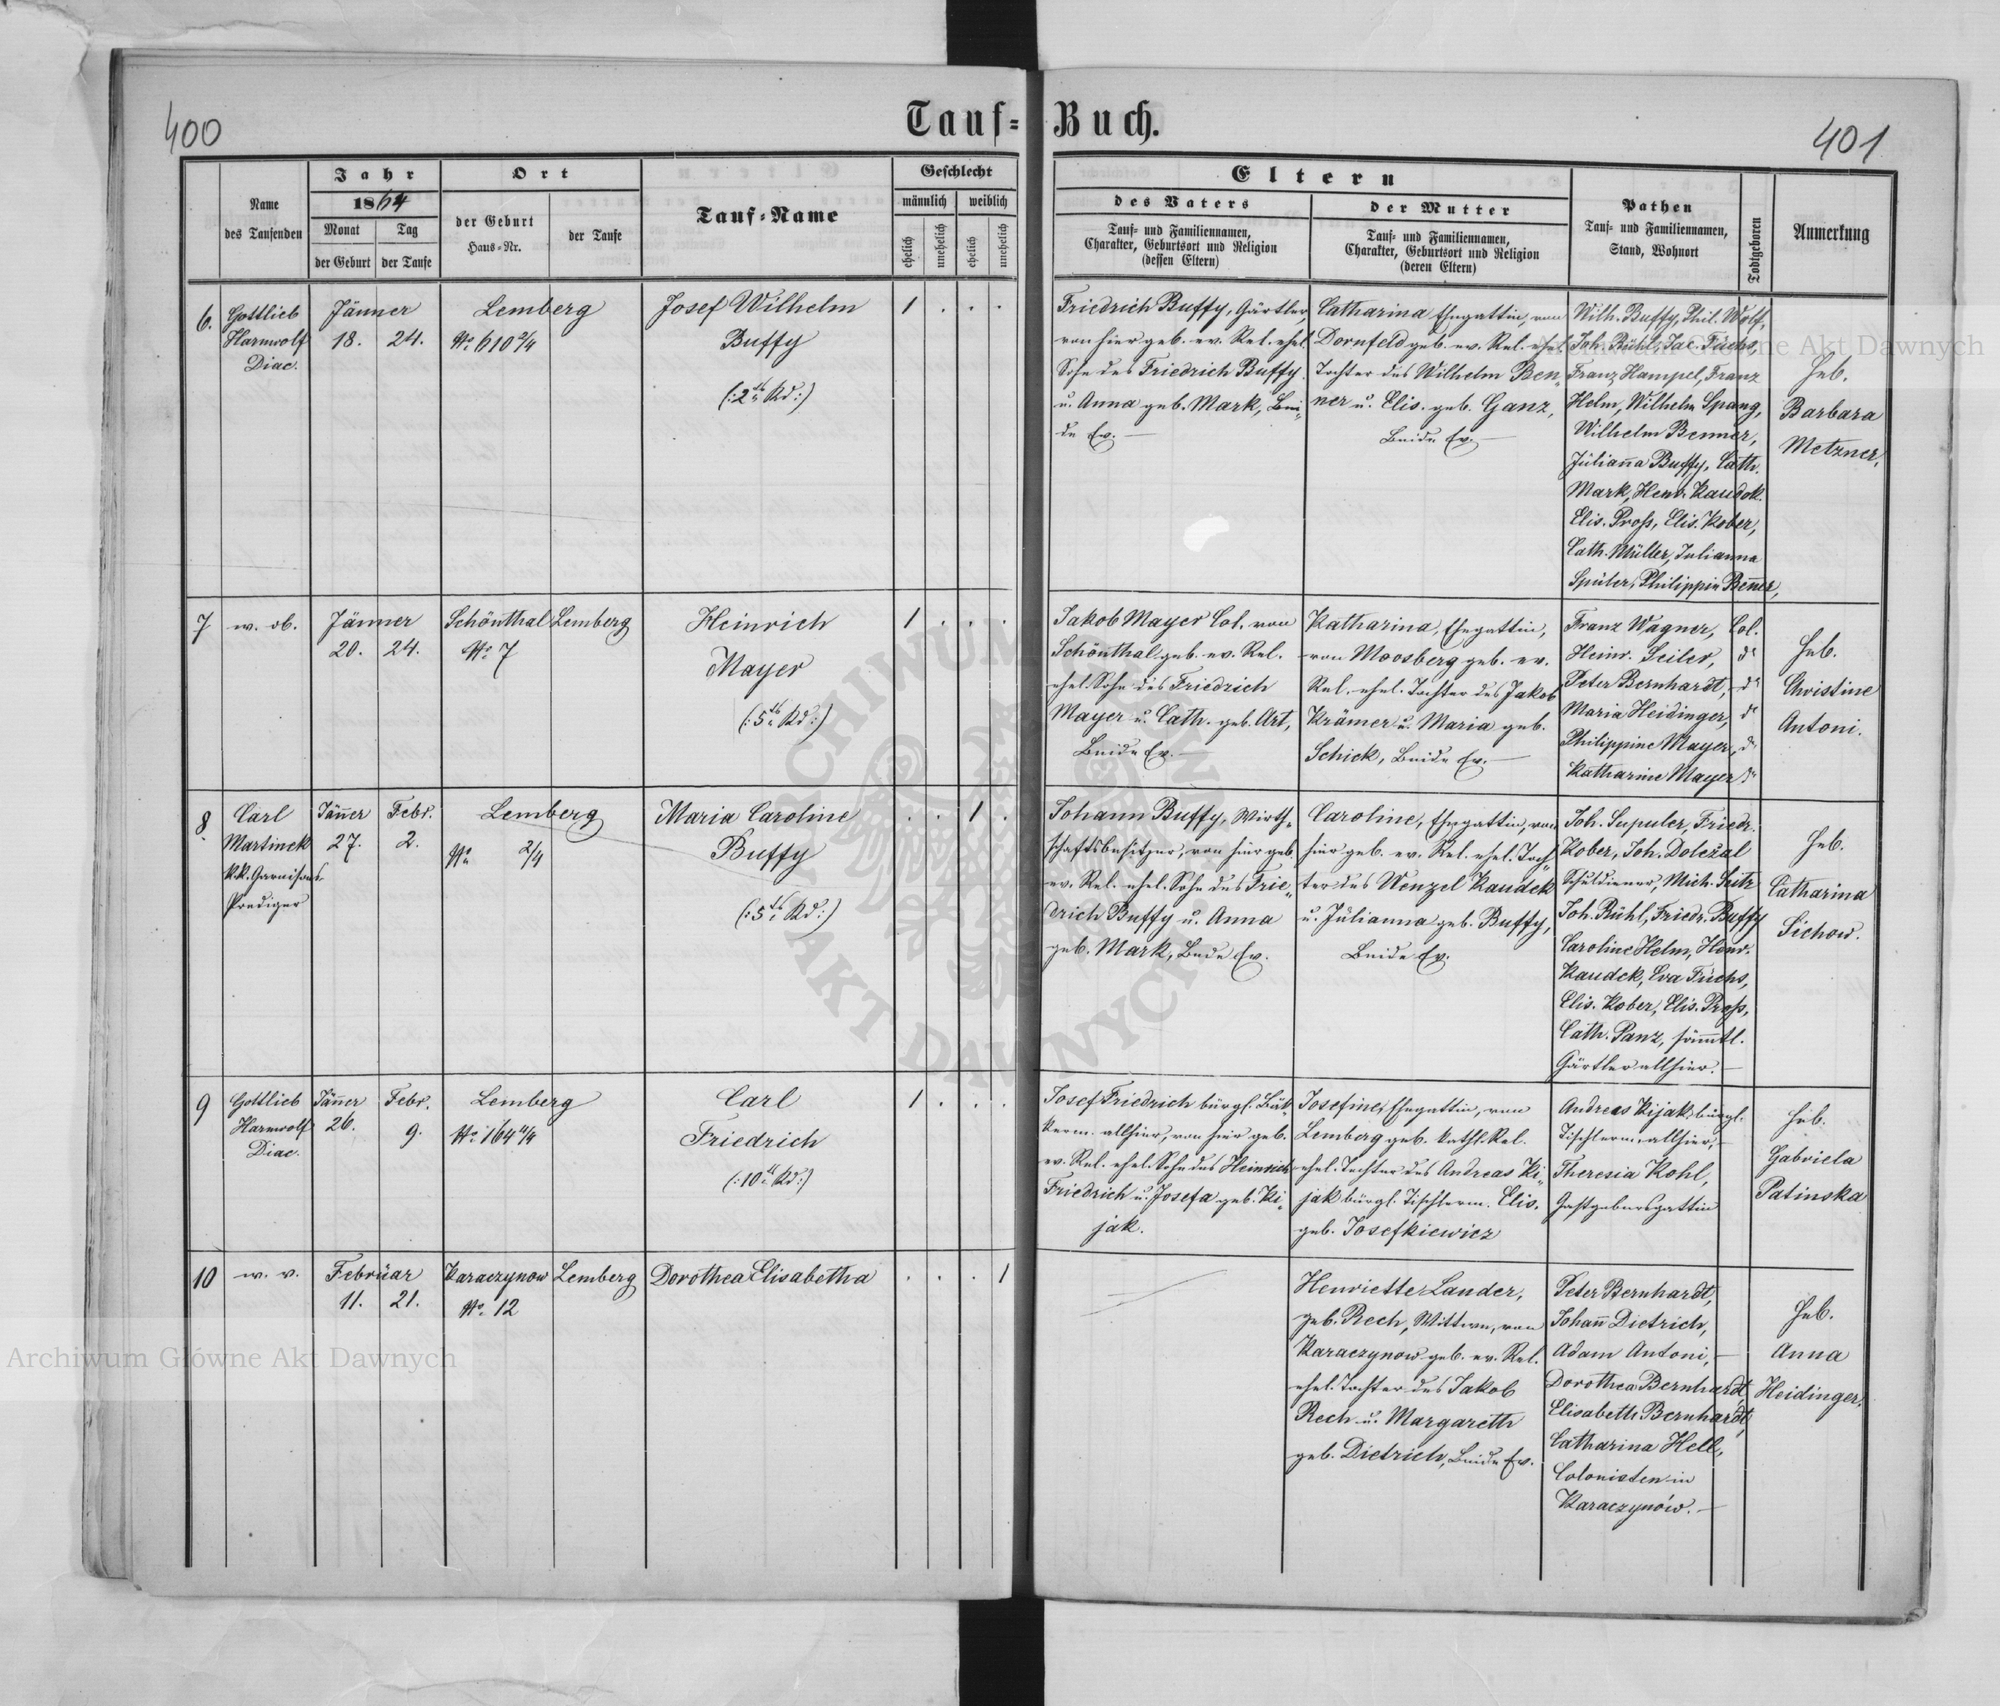 400
Tauf=Buch.
401
Name
des Taufenden
Jahr
1864
Monat
der Geburt
Tag
der Taufe
Ort
der Geburt
Haus=Nr.
der Taufe
Tauf=Name
Geschlecht
männlich
weiblich
ehelich
unehelich
ehelich
unehelich
Eltern
des Vaters
Tauf= und Familiennamen,
Charakter, Geburtsort und Religion
(dessen Eltern)
der Mutter
Tauf= und Familiennamen,
Charakter, Geburtsort und Religion
(deren Eltern)
Pathen
Tauf= und Familiennamen,
Stand, Wohnort
Todtgeboren
Anmerkung
6.
Gottlieb
Harmwolf
Diac.
Jänner
18. 24.
Lemberg
No 610 2/4
Josef Wilhelm
Buffy
(:2tes Kd:)
1 . . .
Friedrich Buffy, Gärtler,
von hier geb. ev. Rel. ehel.
Sohn des Friedrich Buffy
u. Anna geb. Mark, Bei-
de Ev. —
Catharina Ehegattin, von
Dornfeld geb. ev. Rel. ehel.
Tochter des Wilhelm Ben-
ner u. Elis. geb. Ganz,
Beide Ev. —
Wilh. Buffy, Phil. Wolf,
Joh. Rühl, Jac. Fuchs,
Franz Hampel, Franz
Helm, Wilhelm Spang,
Wilhelm Benner,
Julianna Buffy, Cath.
Mark, Henr. Kaudek.
Elis. Proß, Elis. Kober,
Cath. Müller, Julianna
Philippin Benner,
Heb.
Barbara
Metzner.
7
w. ob.
Jänner
20. 24.
Schönthal
No 7
Lemberg
Heinrich
Mayer
(:5tes Kd:)
1 . . .
Jakob Mayer Col. von
Schönthal geb. ev. Rel.
ehel. Sohn des Friedrich
Mayer u. Cath. geb. Art,
Beide Ev. —
Katharina, Ehegattin,
von Moosberg geb. ev.
Rel. ehel. Tochter des Jakob
Krämer u. Maria geb.
Schick, Beide Ev. —
Franz Wagner, Col.
Heinr. Seiler, do
Peter Bernhardt, do
Maria Heidinger, do
Philippine Mayer, do
Katharine Mayer do
Heb.
Christine
Antoni.
8.
Carl
Martinek
k.k. Garnisons-
Prediger
Jänner
27.
Febr.
2.
Lemberg
No 2/4
Maria Caroline
Buffy
(:5tes Kd:)
. . 1 .
Johann Buffy, Wirth-
schaftsbesitzer, von hier geb.
ev. Rel. ehel. Sohn des Frie-
drich Buffy u. Anna
geb. Mark, Beide Ev.
Caroline, Ehegattin, von
hier geb. ev. Rel. ehel. Toch-
ter des Wenzel Kaudek
u. Julianna geb. Buffy,
Beide Ev.
Joh. Supuler, Friedr.
Kober, Joh. Doležal
Schuldiener, Mich. Seitz
Joh. Rühl, Friedr. Buffy
Caroline Helm, Henr.
Kaudek, Eva Fuchs,
Elis. Kober, Elis. Proß,
Cath. Panz, sämmtl.
Gärtler allhier. —
Heb.
Catharina
Sichow.
9
Gottlieb
Harmwolf
Diac.
Jänner
26.
Febr.
9.
Lemberg
No 164 4/4
Carl
Friedrich
(:10tes Kd:)
1 . . .
Josef Friedrich bürgl. Bäk-
kerm. allhier, von hier geb.
ev. Rel. ehel. Sohn des Heinrich
Friedrich u. Josefa geb. Ki-
jak.
Josefine, Ehegattin, von
Lemberg geb. kath. Rel.
ehel. Tochter des Andreas Ki-
jak bürgl. Tischlerm. Elis.
geb. Josefkiewicz
Andreas Kijak bürgl.
Tischlerm. allhier, —
Theresia Kohl,
Gastgebersgattin
Heb.
Gabriela
Patinska
10
w. v.
Februar
11. 21.
Karaczynow
No 12
Lemberg
Dorothea Elisabetha
. . . 1
Henriette Lander,
geb. Rech, Wittwe, von
Karaczynow geb. ev. Rel.
ehel. Tochter des Jakob
Rech u. Margareth
geb. Dietrich, Beide Ev.
Peter Bernhardt,
Johann Dietrich,
Adam Antoni, —
Dorothea Bernhardt
Elisabeth Bernhardt,
Catharina Hell,
Colonisten in
Karaczynów. —
Heb.
Anna
Heidinger.
Archiwum Główne Akt Dawnych
Archiwum Główne Akt Dawnych